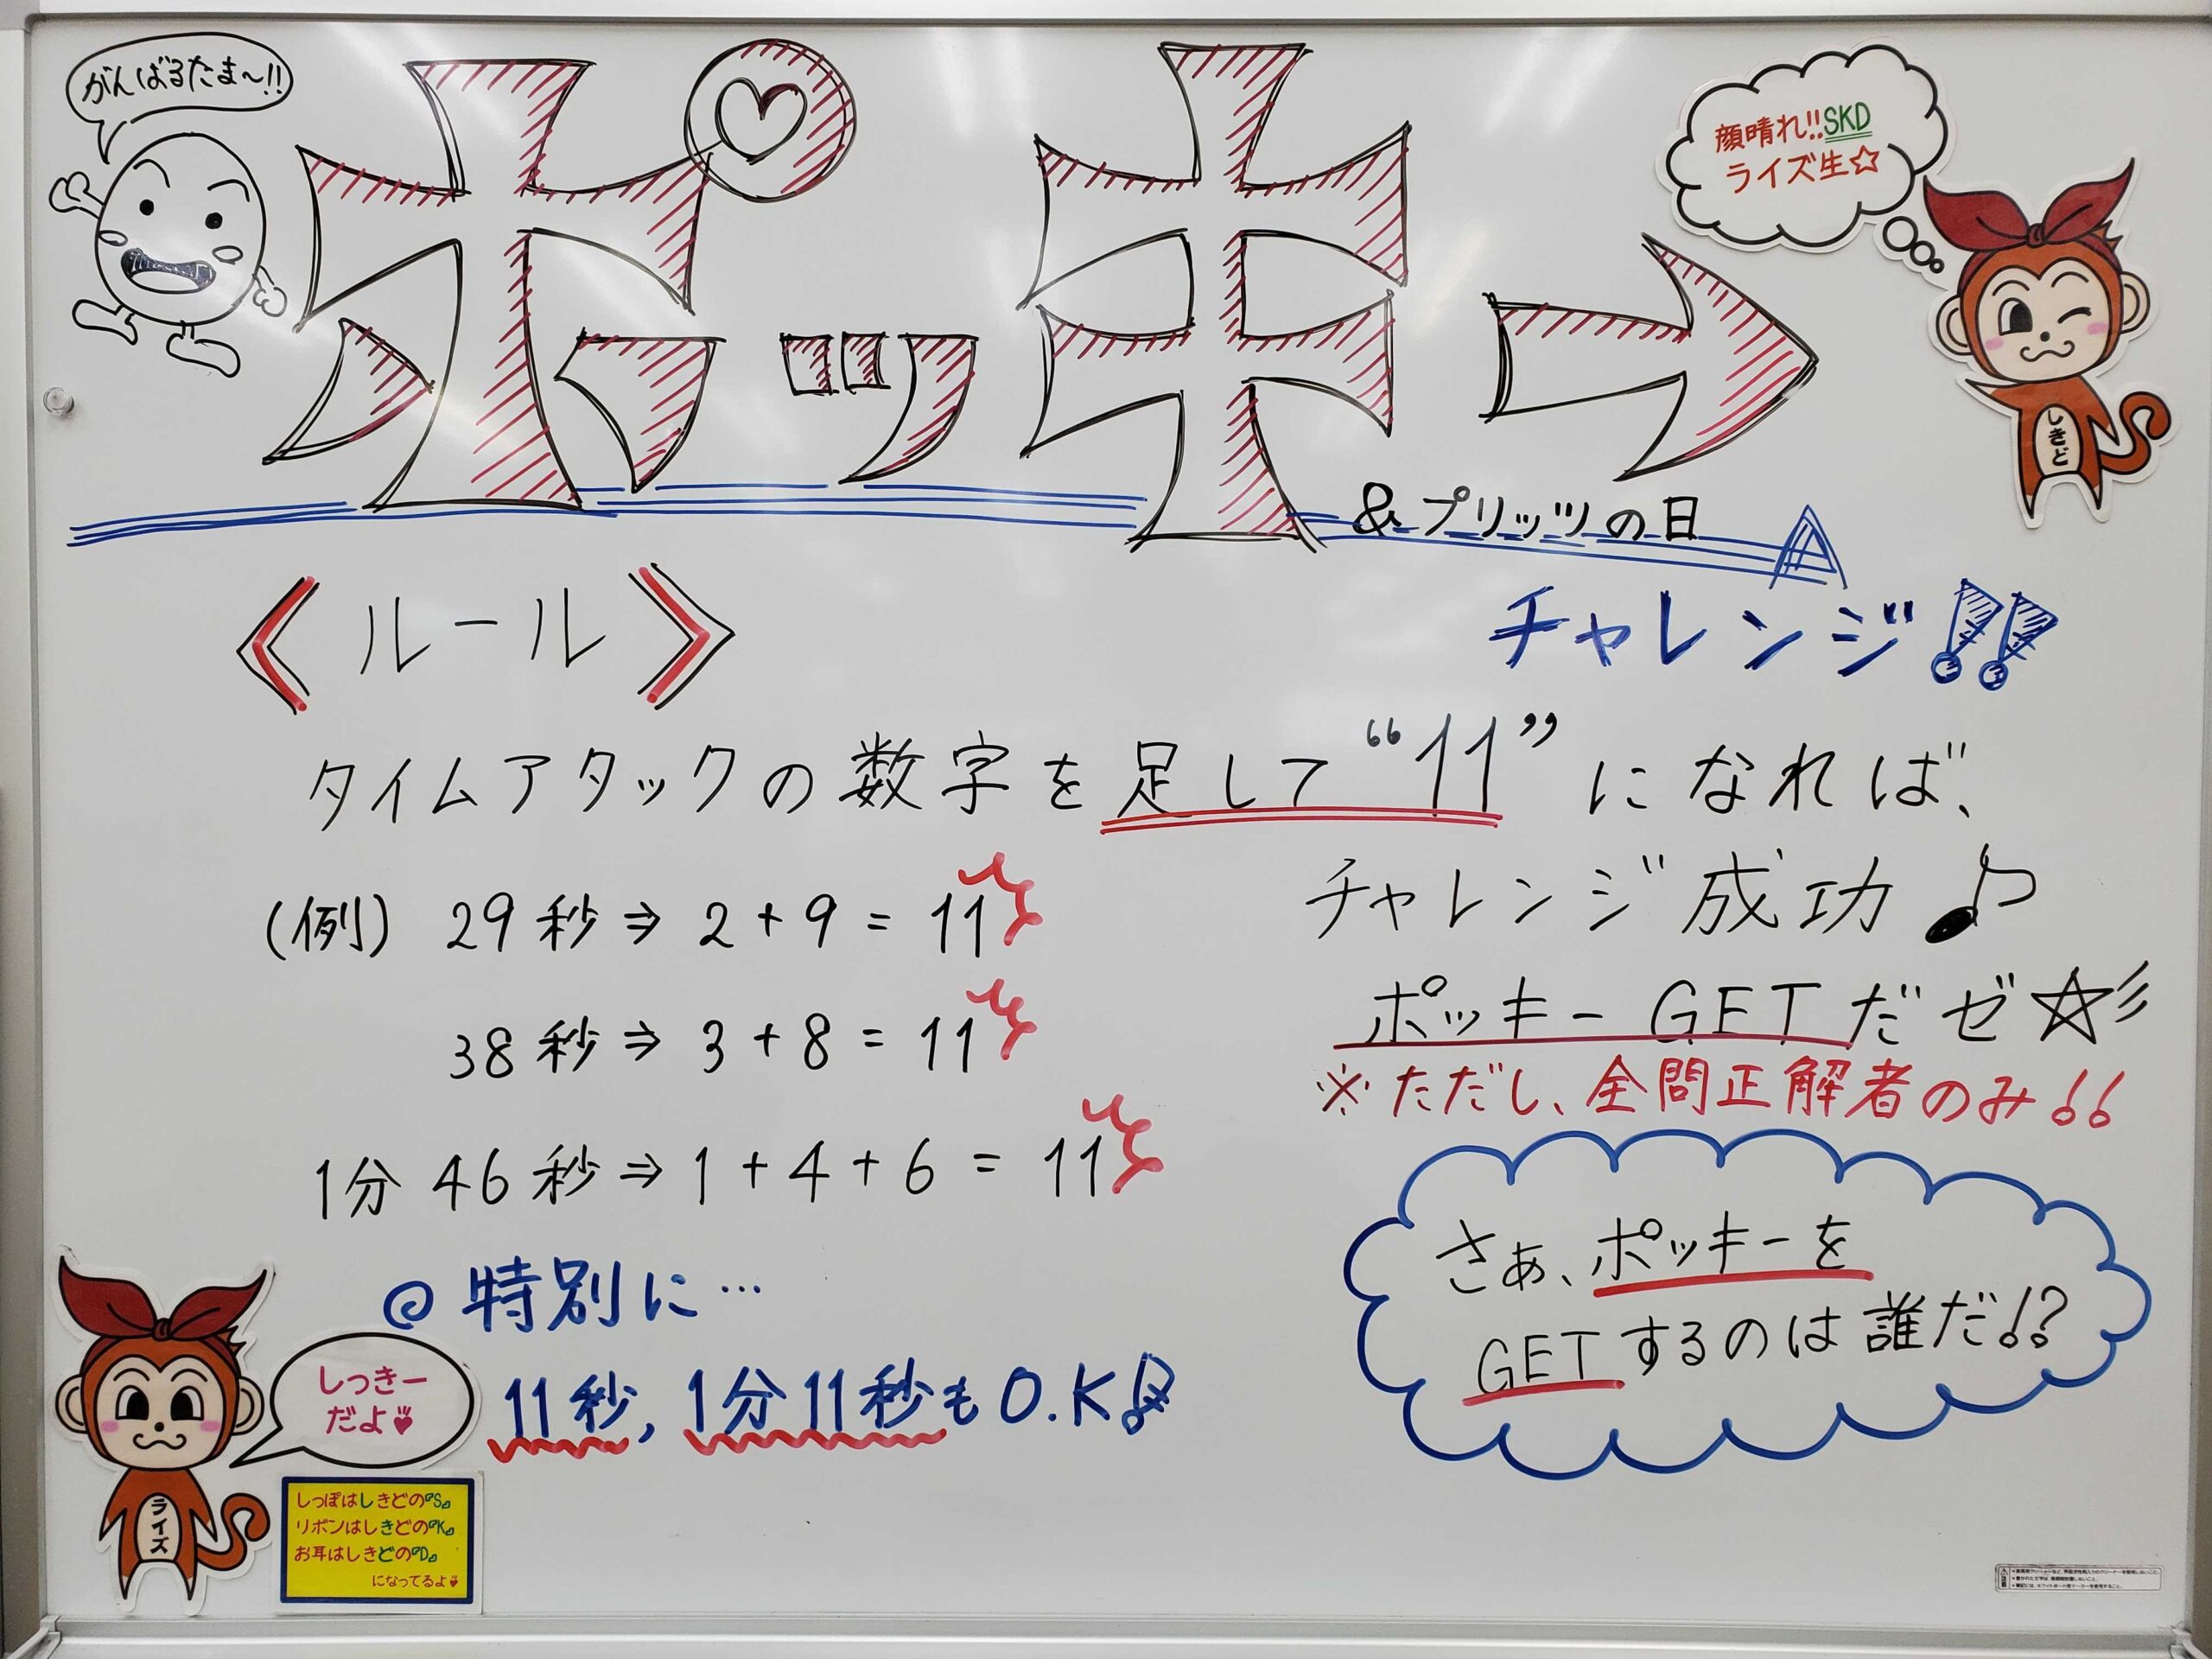 がんばるたま〜!!
ポッキー
&プリッツの日
チャレンジ!!
顔晴れ!!SKD
ライズ生☆
しきど
《ルール》
タイムアタックの数字を足して“11”になれば、
チャレンジ成功♪
ポッキーGETだゼ☆
※ただし、全問正解者のみ!!
(例) 29秒⇒2+9=11
38秒⇒3+8=11
1分46秒⇒1+4+6=11
@特別に…
11秒,1分11秒もO.K!
さぁ、ポッキーを
GETするのは誰だ!?
しっきー
だよ
ライズ
しっぽはしきどの『S』
リボンはしきどの『K』
お耳はしきどの『D』
になってるよ